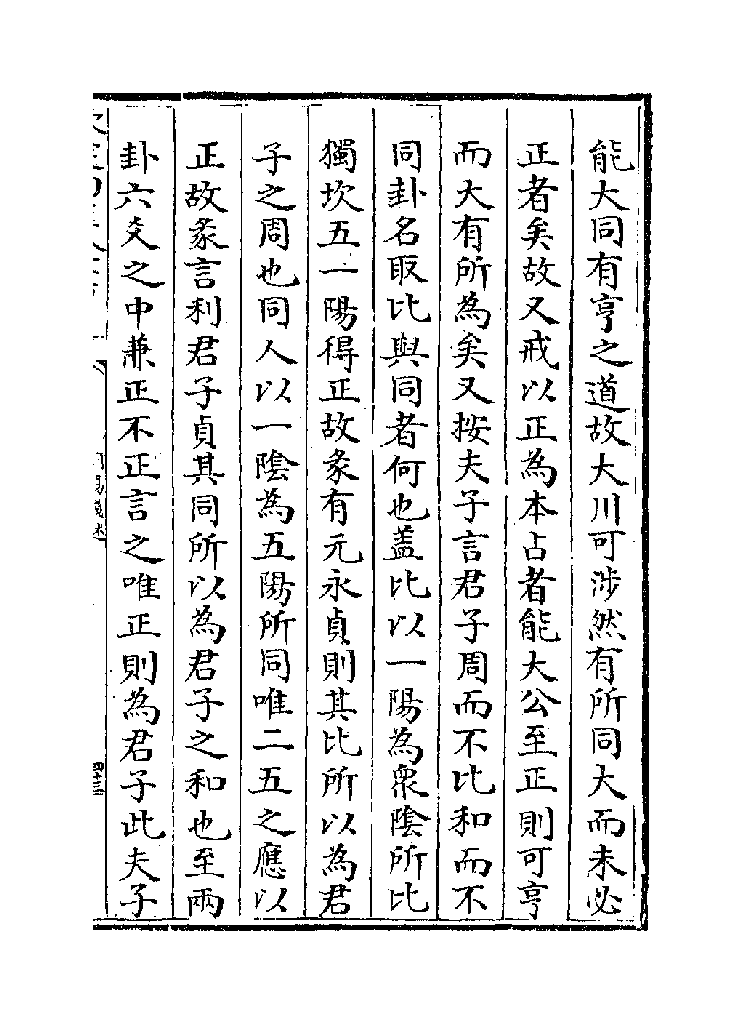 能大同有亨之道故大川可涉然有所同大而未必
正者矣故又戒以正為本占者能大公至正則可亨
而大有所為矣又按夫子言君子周而不比和而不
同卦名取比與同者何也蓋比以一陽為衆陰所比
獨坎五一陽得正故彖有元永貞則其比所以為君
子之周也同人以一陰為五陽所同唯二五之應以
正故彖言利君子貞其同所以為君子之和也至兩
卦六爻之中兼正不正言之唯正則為君子此夫子